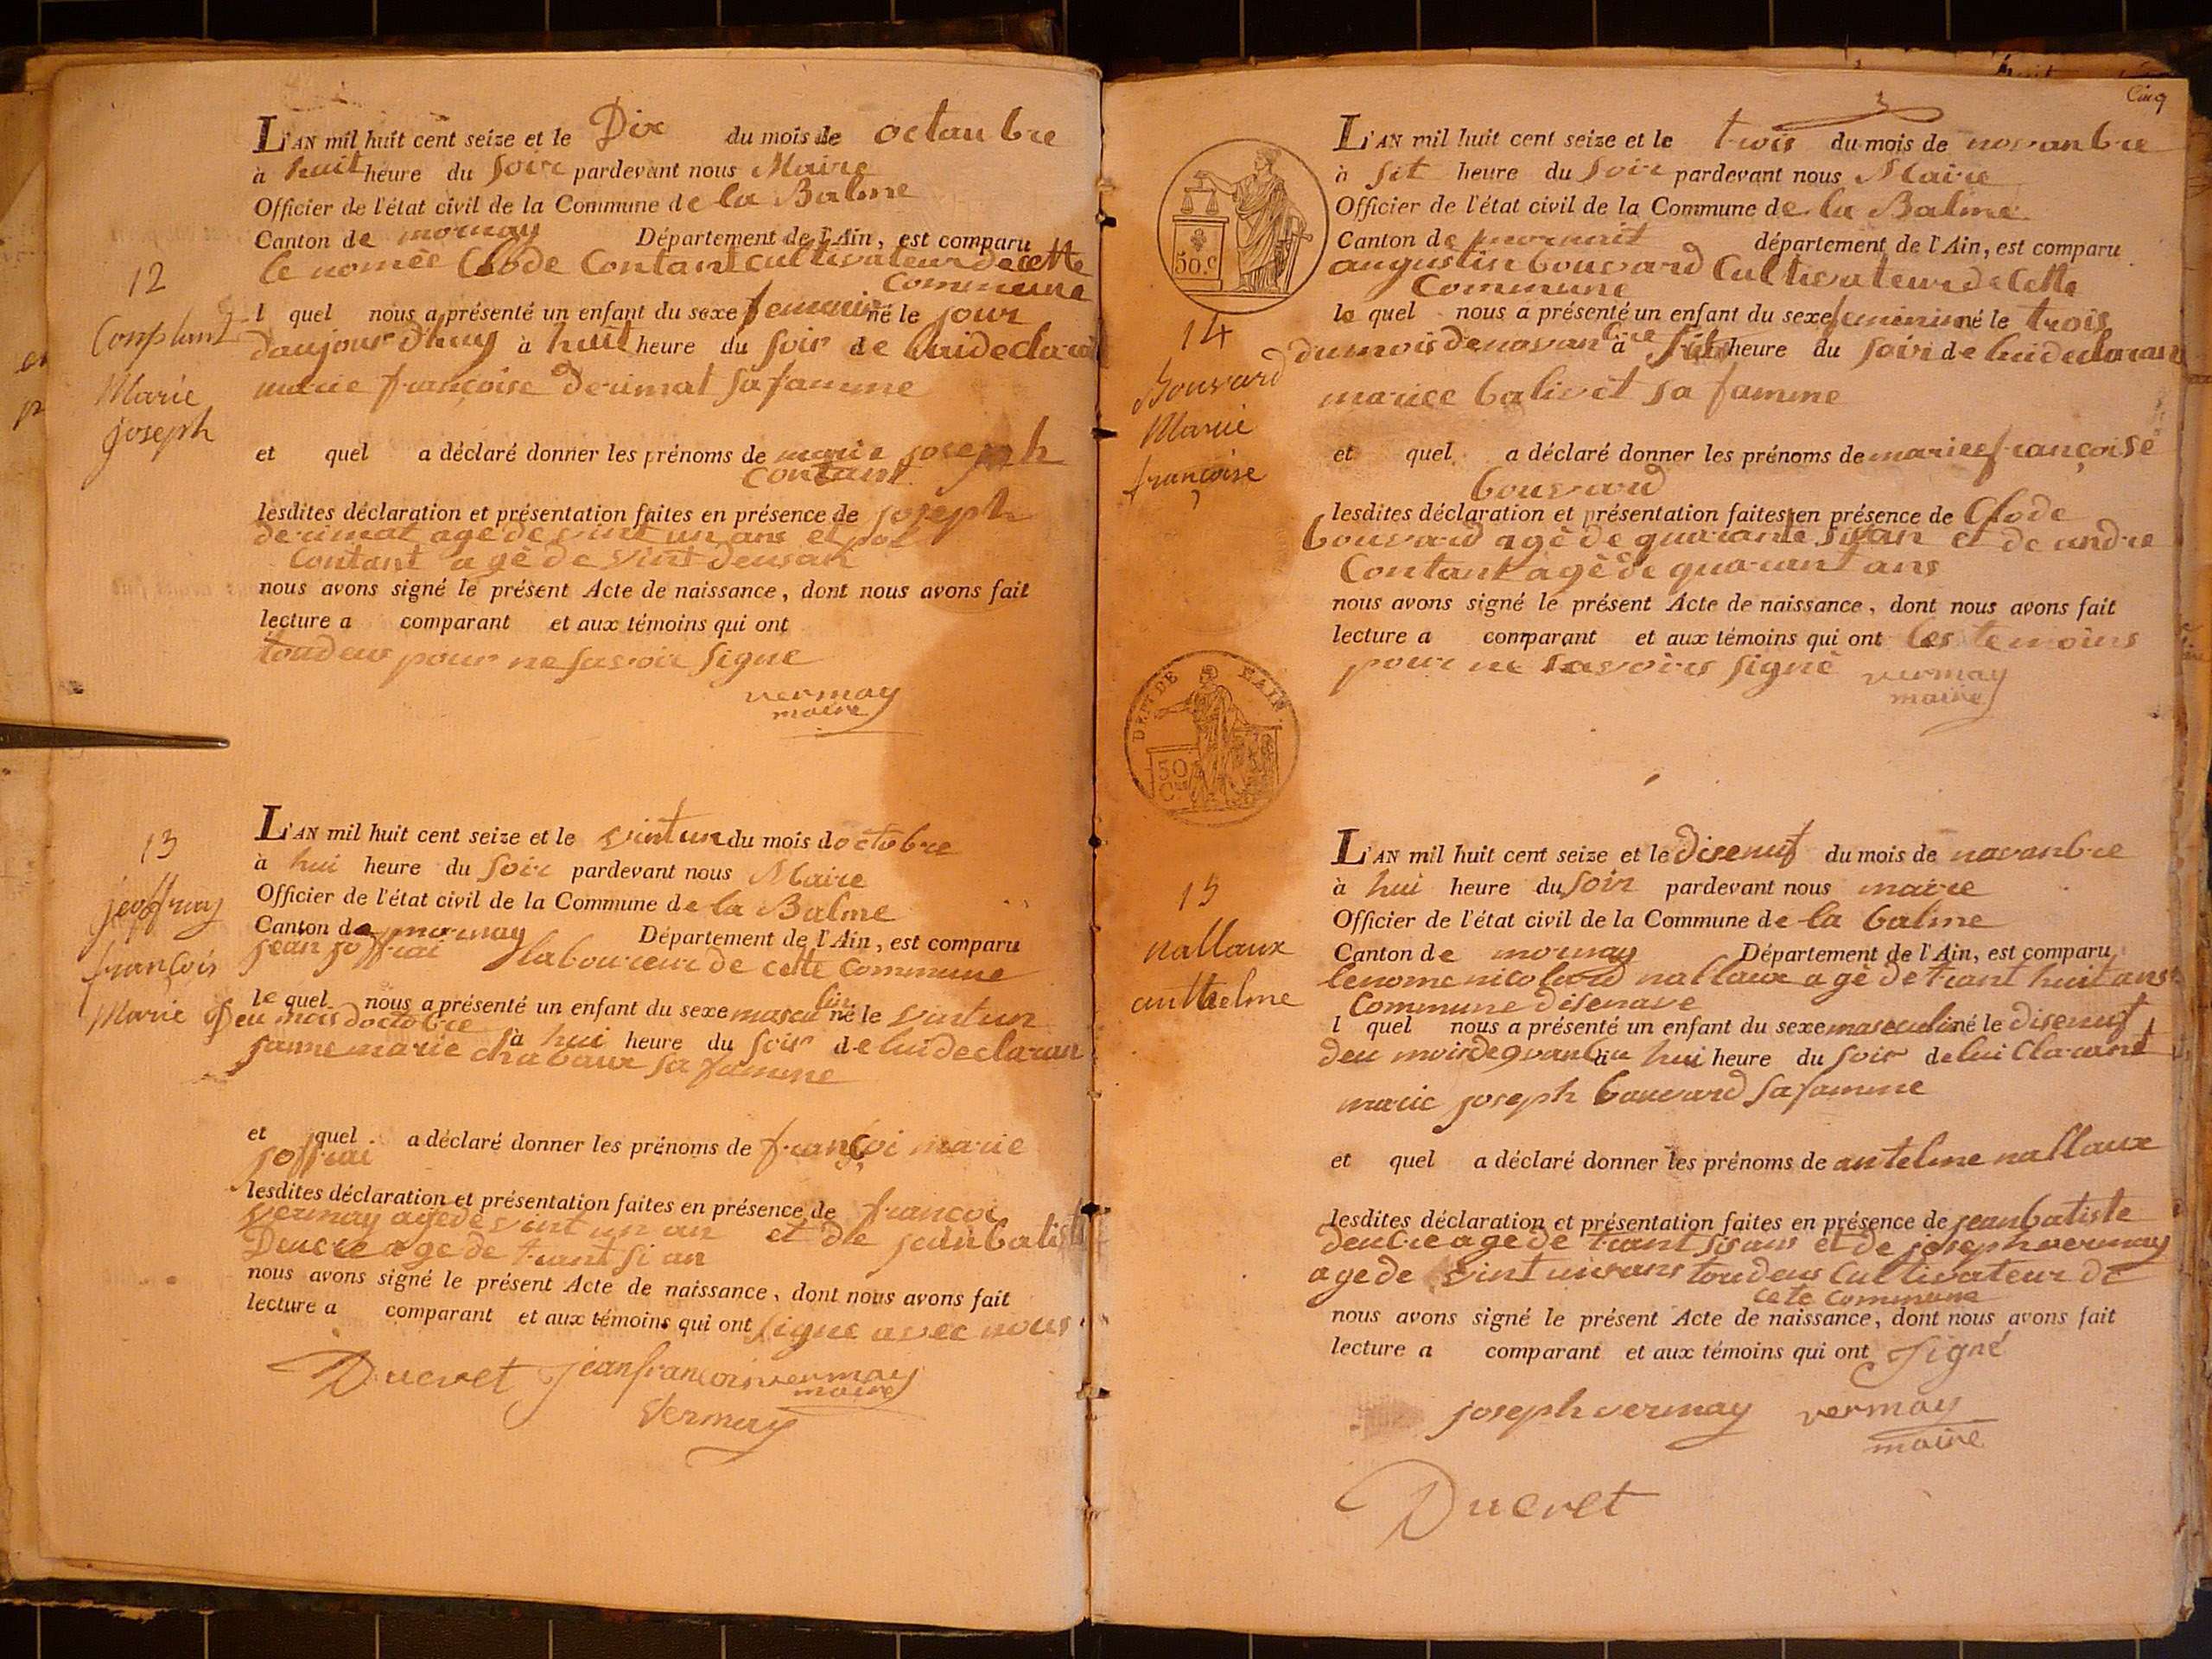 L'AN mil huit cent seize et le Dix du mois de octanbre
à huit heure du soir pardevant nous Maire
Officier de l'état civil de la Commune de la Balme
Canton de mornay Département de l'Ain, est comparu
le nomée Clode Contant cultivateur de cette
Commune
l quel nous a présenté un enfant du sexe né le jour
daujourdhuy à huit heure du soir de lui declarant
marie françoise derimat sa famme
et quel a déclaré donner les prénoms de marie joseph
contant
lesdites déclaration et présentation faites en présence de joseph
derimat agé de vint un ans et
Contant agé de vint deus an
nous avons signé le présent Acte de naissance, dont nous avons fait
lecture a comparant et aux témoins qui ont
toudeus pour ne savoir signe
vermay
maire
12
Marie
joseph
L'AN mil huit cent seize et le vint un du mois doctobre
à hui heure du soir pardevant nous Maire
Officier de l'état civil de la Commune de la Balme
Canton de mornay Département de l'Ain, est comparu
jean joffrai laboureur de cette Commune
le quel nous a présenté un enfant du sexe masculin né le vint un
deu mois doctobre à hui heure du soir de lui declaran
janne marie chabaux sa famme
et quel a déclaré donner les prénoms de françoi marie
joffrai
lesdites déclaration et présentation faites en présence de françoi
vermay agé de vint un an et de jean batiste
agé de trant si an
nous avons signé le présent Acte de naissance, dont nous avons fait
lecture a comparant et aux témoins qui ont signe avec nous
Ducret jean francois vermay
maire
vermay
13
jeoffray
françois
Marie
Cinq
L'AN mil huit cent seize et le trois du mois de novanbre
à sit heure du soir pardevant nous Maire
Officier de l'état civil de la Commune de la Balme
Canton de mornait département de l'Ain, est comparu
augustin bouvard Cultivateur de Cette
Commune
le quel nous a présenté un enfant du sexe feminin né le trois
du mois de novanbre à heure du soir de lui declaran
mariee balivet sa famme
et quel a déclaré donner les prénoms de mariee françoise
bouvard
lesdites déclaration et présentation faites en présence de Clode
bouvard agé de quarante sitan et de andre
Contant agé de quarant ans
nous avons signé le présent Acte de naissance, dont nous avons fait
lecture a comparant et aux témoins qui ont les temoins
pour ne savoirs signé vermay
maire
50.C
14
Bouvard
Marie
françoise
DEPT DE L'AIN
50
C.
L'AN mil huit cent seize et le disenuf du mois de navanbre
à hui heure du soir pardevant nous maire
Officier de l'état civil de la Commune de la balme
Canton de mornay Département de l'Ain, est comparu
le nome nicolard nallaux agé de trant huit ans
Commune
l quel nous a présenté un enfant du sexe masculin né le disenuf
deu mois de hui heure du soir de lui clarant
marie joseph bouvard sa famme
et quel a déclaré donner les prénoms de antelme nallaux
lesdites déclaration et présentation faites en présence de jean batiste
agé de trant sis ans et de joseph vermay
agé de vint un ans toudeus Cultivateur de
cete Commune
nous avons signé le présent Acte de naissance, dont nous avons fait
lecture a comparant et aux témoins qui ont signé
joseph vermay vermay
maire
Ducret
15
nallaux
anthelme